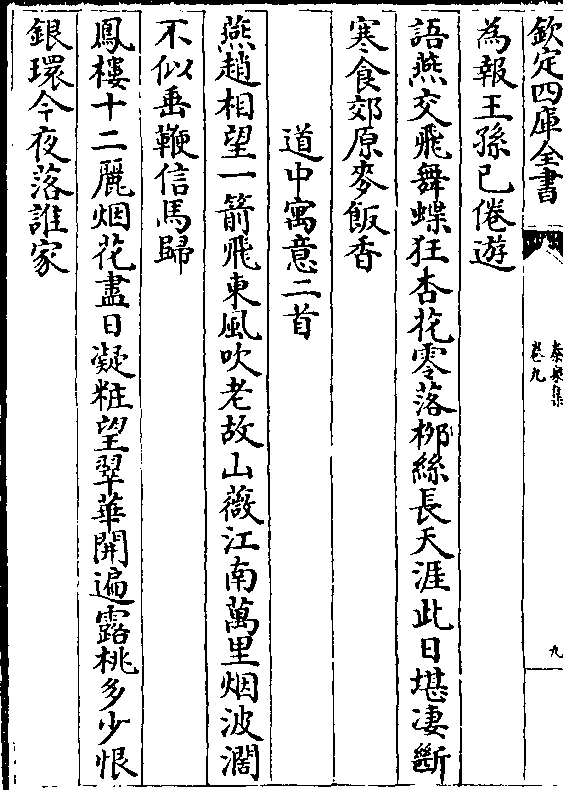 欽定四庫全書
卷九
九
為報王孫已倦遊
語燕交飛舞蝶狂杏花零落栁絲長天涯此日堪凄斷
寒食郊原麥飯香
道中寓意二首
燕趙相望一箭飛東風吹老故山薇江南萬里烟波濶
不似垂鞭信馬歸
鳳樓十二麗烟花盡日凝粧望翠華開遍露桃多少恨
銀環今夜落誰家